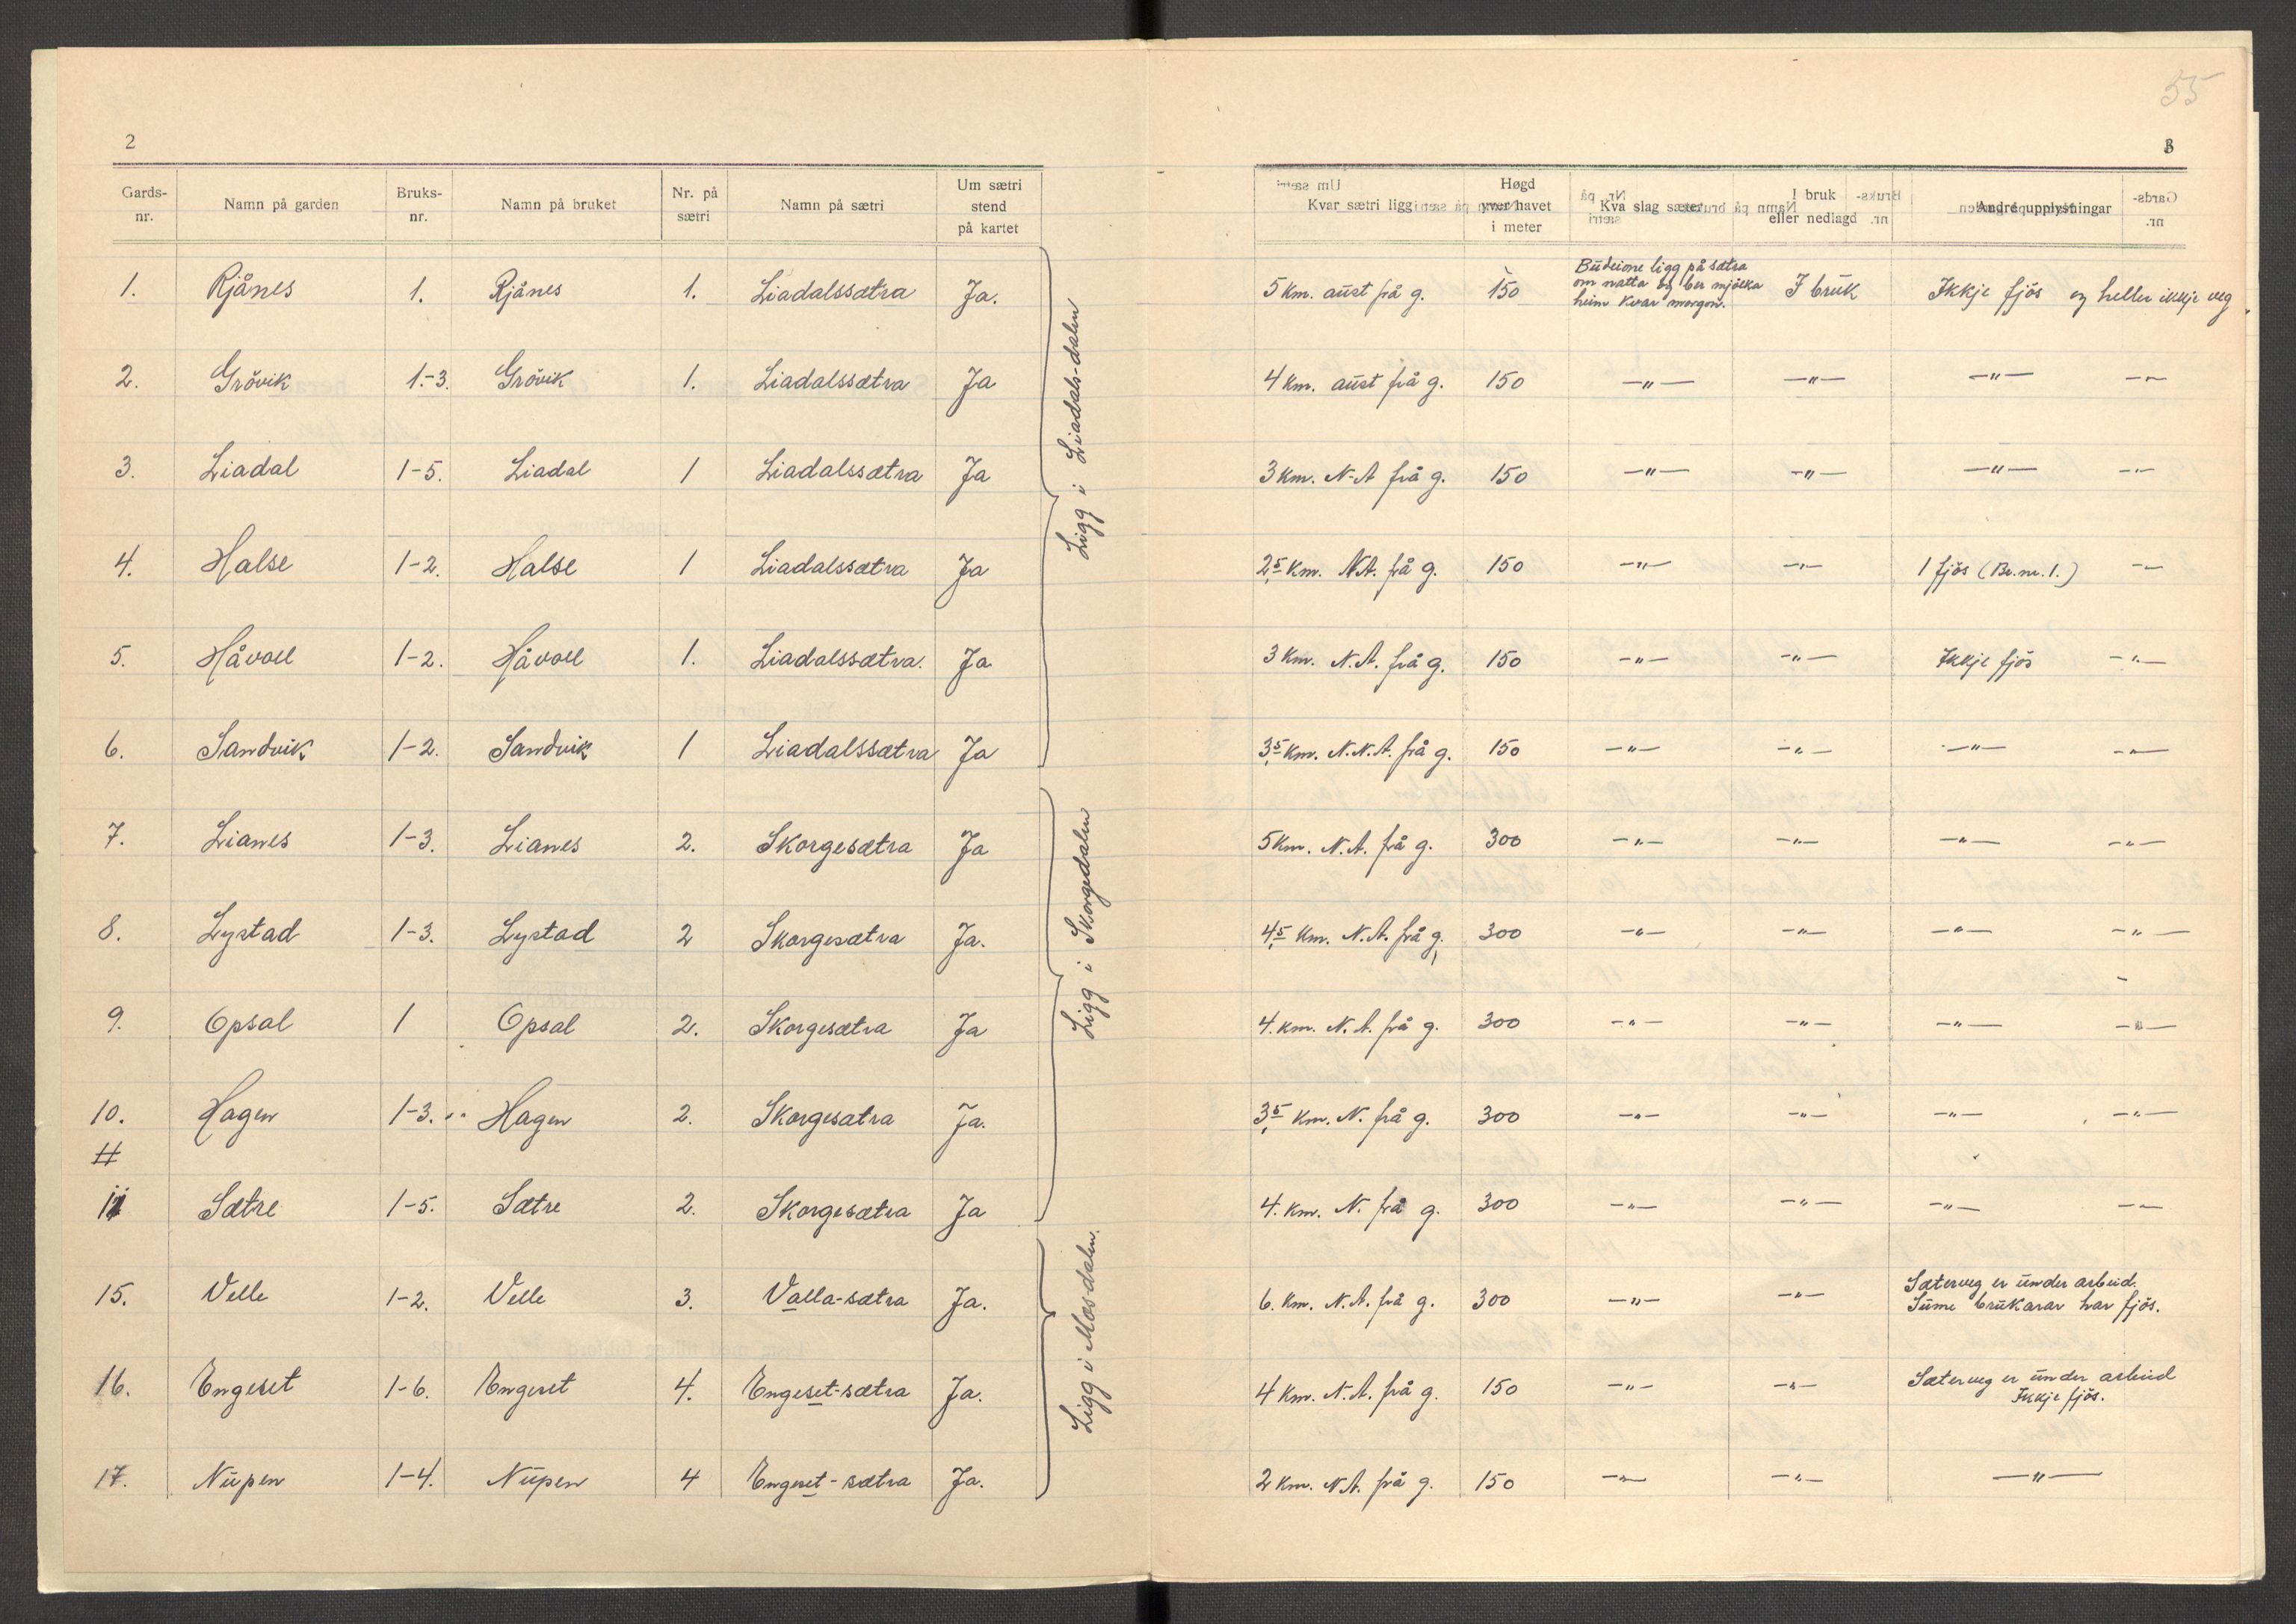 55
2
3
Gards-nr. Namn på garden Bruks-nr. Namn på bruket Nr. på sætri Namn på sætri Um sætri stend på kartet Kvar sætri ligg Høgd yver havet i meter Kva slag sæter I bruk eller nedlagd Andre upplysningar
1. Rjånes 1. Rjånes 1. Liadalssætra Ja. 5 km. aust frå g. 150 Budeione ligg på sætra om natta og ber mjölka heim kvar morgon. I bruk Ikkje fjös og heller ikkje veg.
2. Grövik 1.-3. Grövik 1. Liadalssætra Ja 4 km. aust frå g. 150 -"- -"- -"- -"-
3. Liadal 1-5. Liadal 1 Liadalssætra Ja 3 km. N-A frå g. 150 -"- -"- -"- -"-
4. Halse 1-2. Halse 1 Liadalssætra Ja 2,5 km. N.A. frå g. 150 -"- -"- 1 fjös (Br.nr.1.) -"-
5. Håvoll 1-2. Håvoll 1. Liadalssætra. Ja 3 km. N.A. frå g. 150 -"- -"- Ikkje fjös -"-
6. Sandvik 1-2. Sandvik 1 Liadalssætra Ja 3,5 km. N.N.A. frå g. 150 -"- -"- -"- -"-
Ligg i Liadals-dalen
7. Lianes 1-3. Lianes 2. Skorgesætra Ja 5 km. N.A. frå g. 300 -"- -"- -"- -"-
8. Lystad 1-3. Lystad 2 Skorgesætra Ja. 4,5 km. N.A. frå g, 300 -"- -"- -"- -"-
9. Opsal 1 Opsal 2. Skorgesætra Ja 4. km. N.A. frå g. 300 -"- -"- -"- -"-
10. Hagen 1-3. Hagen 2. Skorgesætra Ja. 3,5 km. N. frå g. 300 -"- -"- -"- -"-
11 Sætre 1-5. Sætre 2. Skorgesætra Ja 4. km. N. frå g. 300 -"- -"- -"- -"-
Ligg i Skorgedalen
15. Velle 1-2. Velle 3. Valla-sætra Ja. 6. km. N.A. frå g. 300 -"- -"- Sæterveg er under arbeid. Sume brukarar har fjös.
16. Engeset 1-6. Engeset 4. Engeset-sætra Ja. 4 km. N.A. frå g. 150 -"- -"- Sæterveg er under arbeid Ikkje fjös.
17. Nupen 1-4. Nupen 4 Engeset-sætra Ja. 2 km. N.A. frå g. 150 -"- -"- -"-
Ligg i Mosdalen.